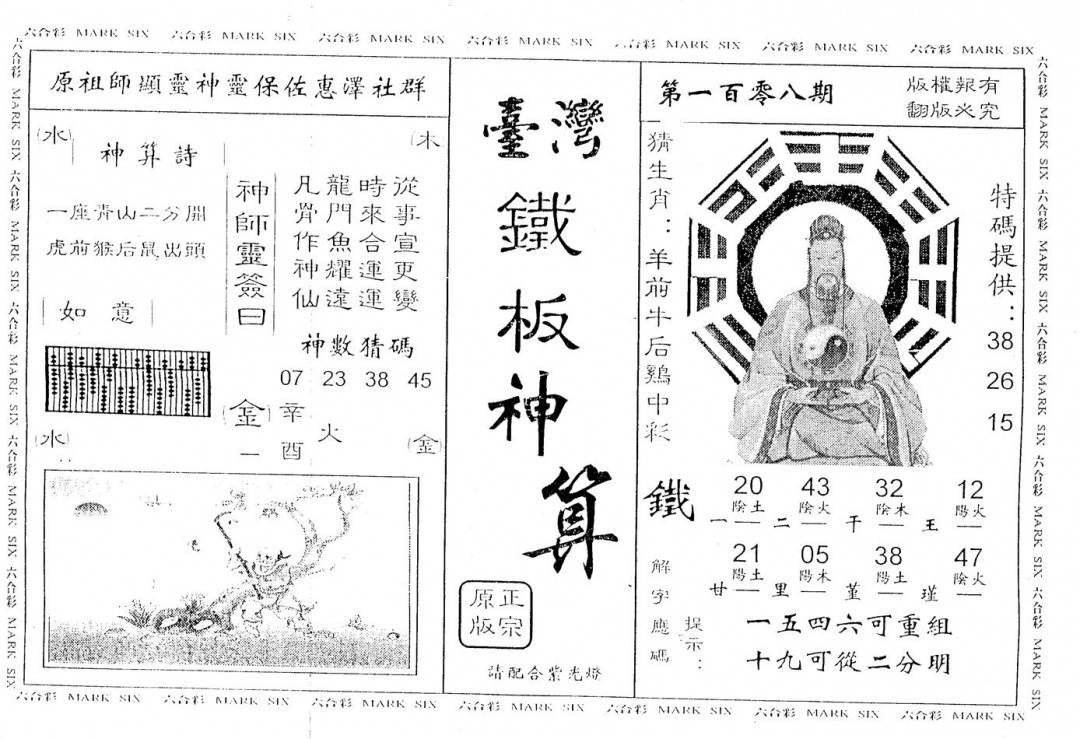 六合彩 MARK SIX 六合彩 MARK SIX 六合彩 MARK SIX 六合彩 MARK SIX 六合彩 MARK SIX 六合彩 MARK SIX 六合彩 MARK SIX
原祖師顯靈神靈保佐惠澤社群
(水)
神算詩
(木)
一座青山二分開
虎前猴后鼠出頭
如意
神師靈簽曰
從事宣更變
時來合運運
龍門魚耀遠
凡骨作神仙
神數猜碼
07 23 38 45
(水)
(金)
一
辛酉
火
(金)
臺灣
鐵
板
神
算
正宗
原版
請配合紫光燈
第一百零八期
版權報有
翻版必究
猜生肖：羊前牛后鷄中彩
特碼提供：
38
26
15
鐵
20 43 32 12
陰土 陰火 陰木 陽火
一 二 干 王
21 05 38 47
陽土 陽木 陽土 陰火
廿 里 堇 瑾
解字應碼
提示：
一五四六可重組
十九可從二分明
六合彩 MARK SIX 六合彩 MARK SIX 六合彩 MARK SIX 六合彩 MARK SIX 六合彩 MARK SIX 六合彩 MARK SIX 六合彩 MARK SIX
六合彩 MARK SIX 六合彩 MARK SIX 六合彩 MARK SIX 六合彩 MARK SIX 六合彩 MARK SIX
六合彩 MARK SIX 六合彩 MARK SIX 六合彩 MARK SIX 六合彩 MARK SIX 六合彩 MARK SIX